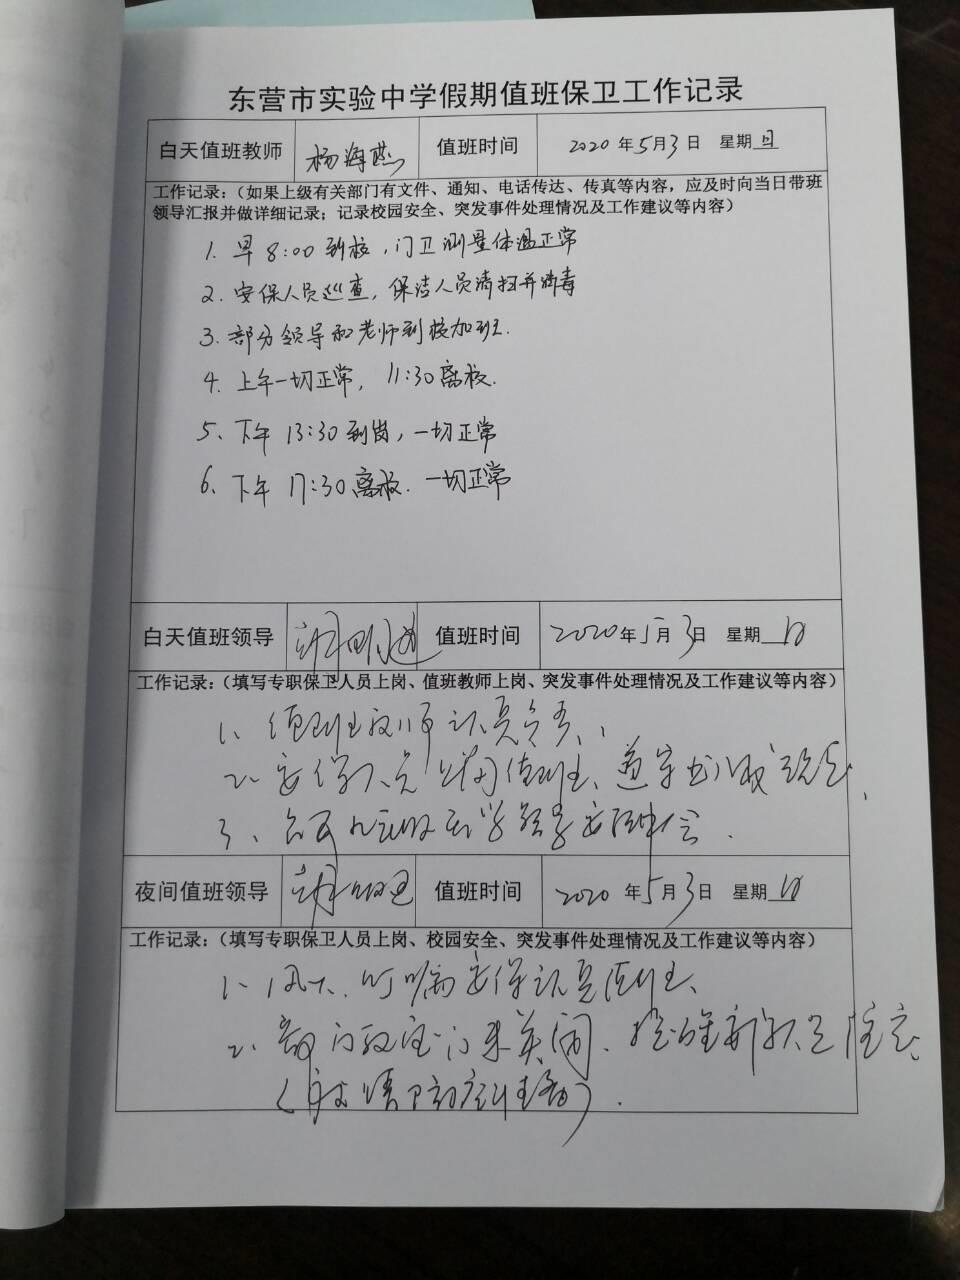 东营市实验中学假期值班保卫工作记录
白天值班教师 杨海燕 值班时间 2020年5月3日 星期日
工作记录:(如果上级有关部门有文件、通知、电话传达、传真等内容，应及时向当日带班
领导汇报并做详细记录；记录校园安全、突发事件处理情况及工作建议等内容)
1. 早8:00到校,门卫测量体温正常
2. 安保人员巡查,保洁人员清扫并消毒
3. 部分领导和老师到校加班.
4. 上午一切正常, 11:30离校.
5、下午 13:30到岗,一切正常
6、下午 17:30离校. 一切正常
白天值班领导 值班时间 2020年5月3日 星期日
工作记录:(填写专职保卫人员上岗、值班教师上岗、突发事件处理情况及工作建议等内容)
1、值班教师认真负责、
2、安保人员 值班、遵守
3、
夜间值班领导 值班时间 2020年5月3日 星期日
工作记录:(填写专职保卫人员上岗、校园安全、突发事件处理情况及工作建议等内容)
1、风大、叮嘱安保认真值班、
2、部门教室门未关闭、